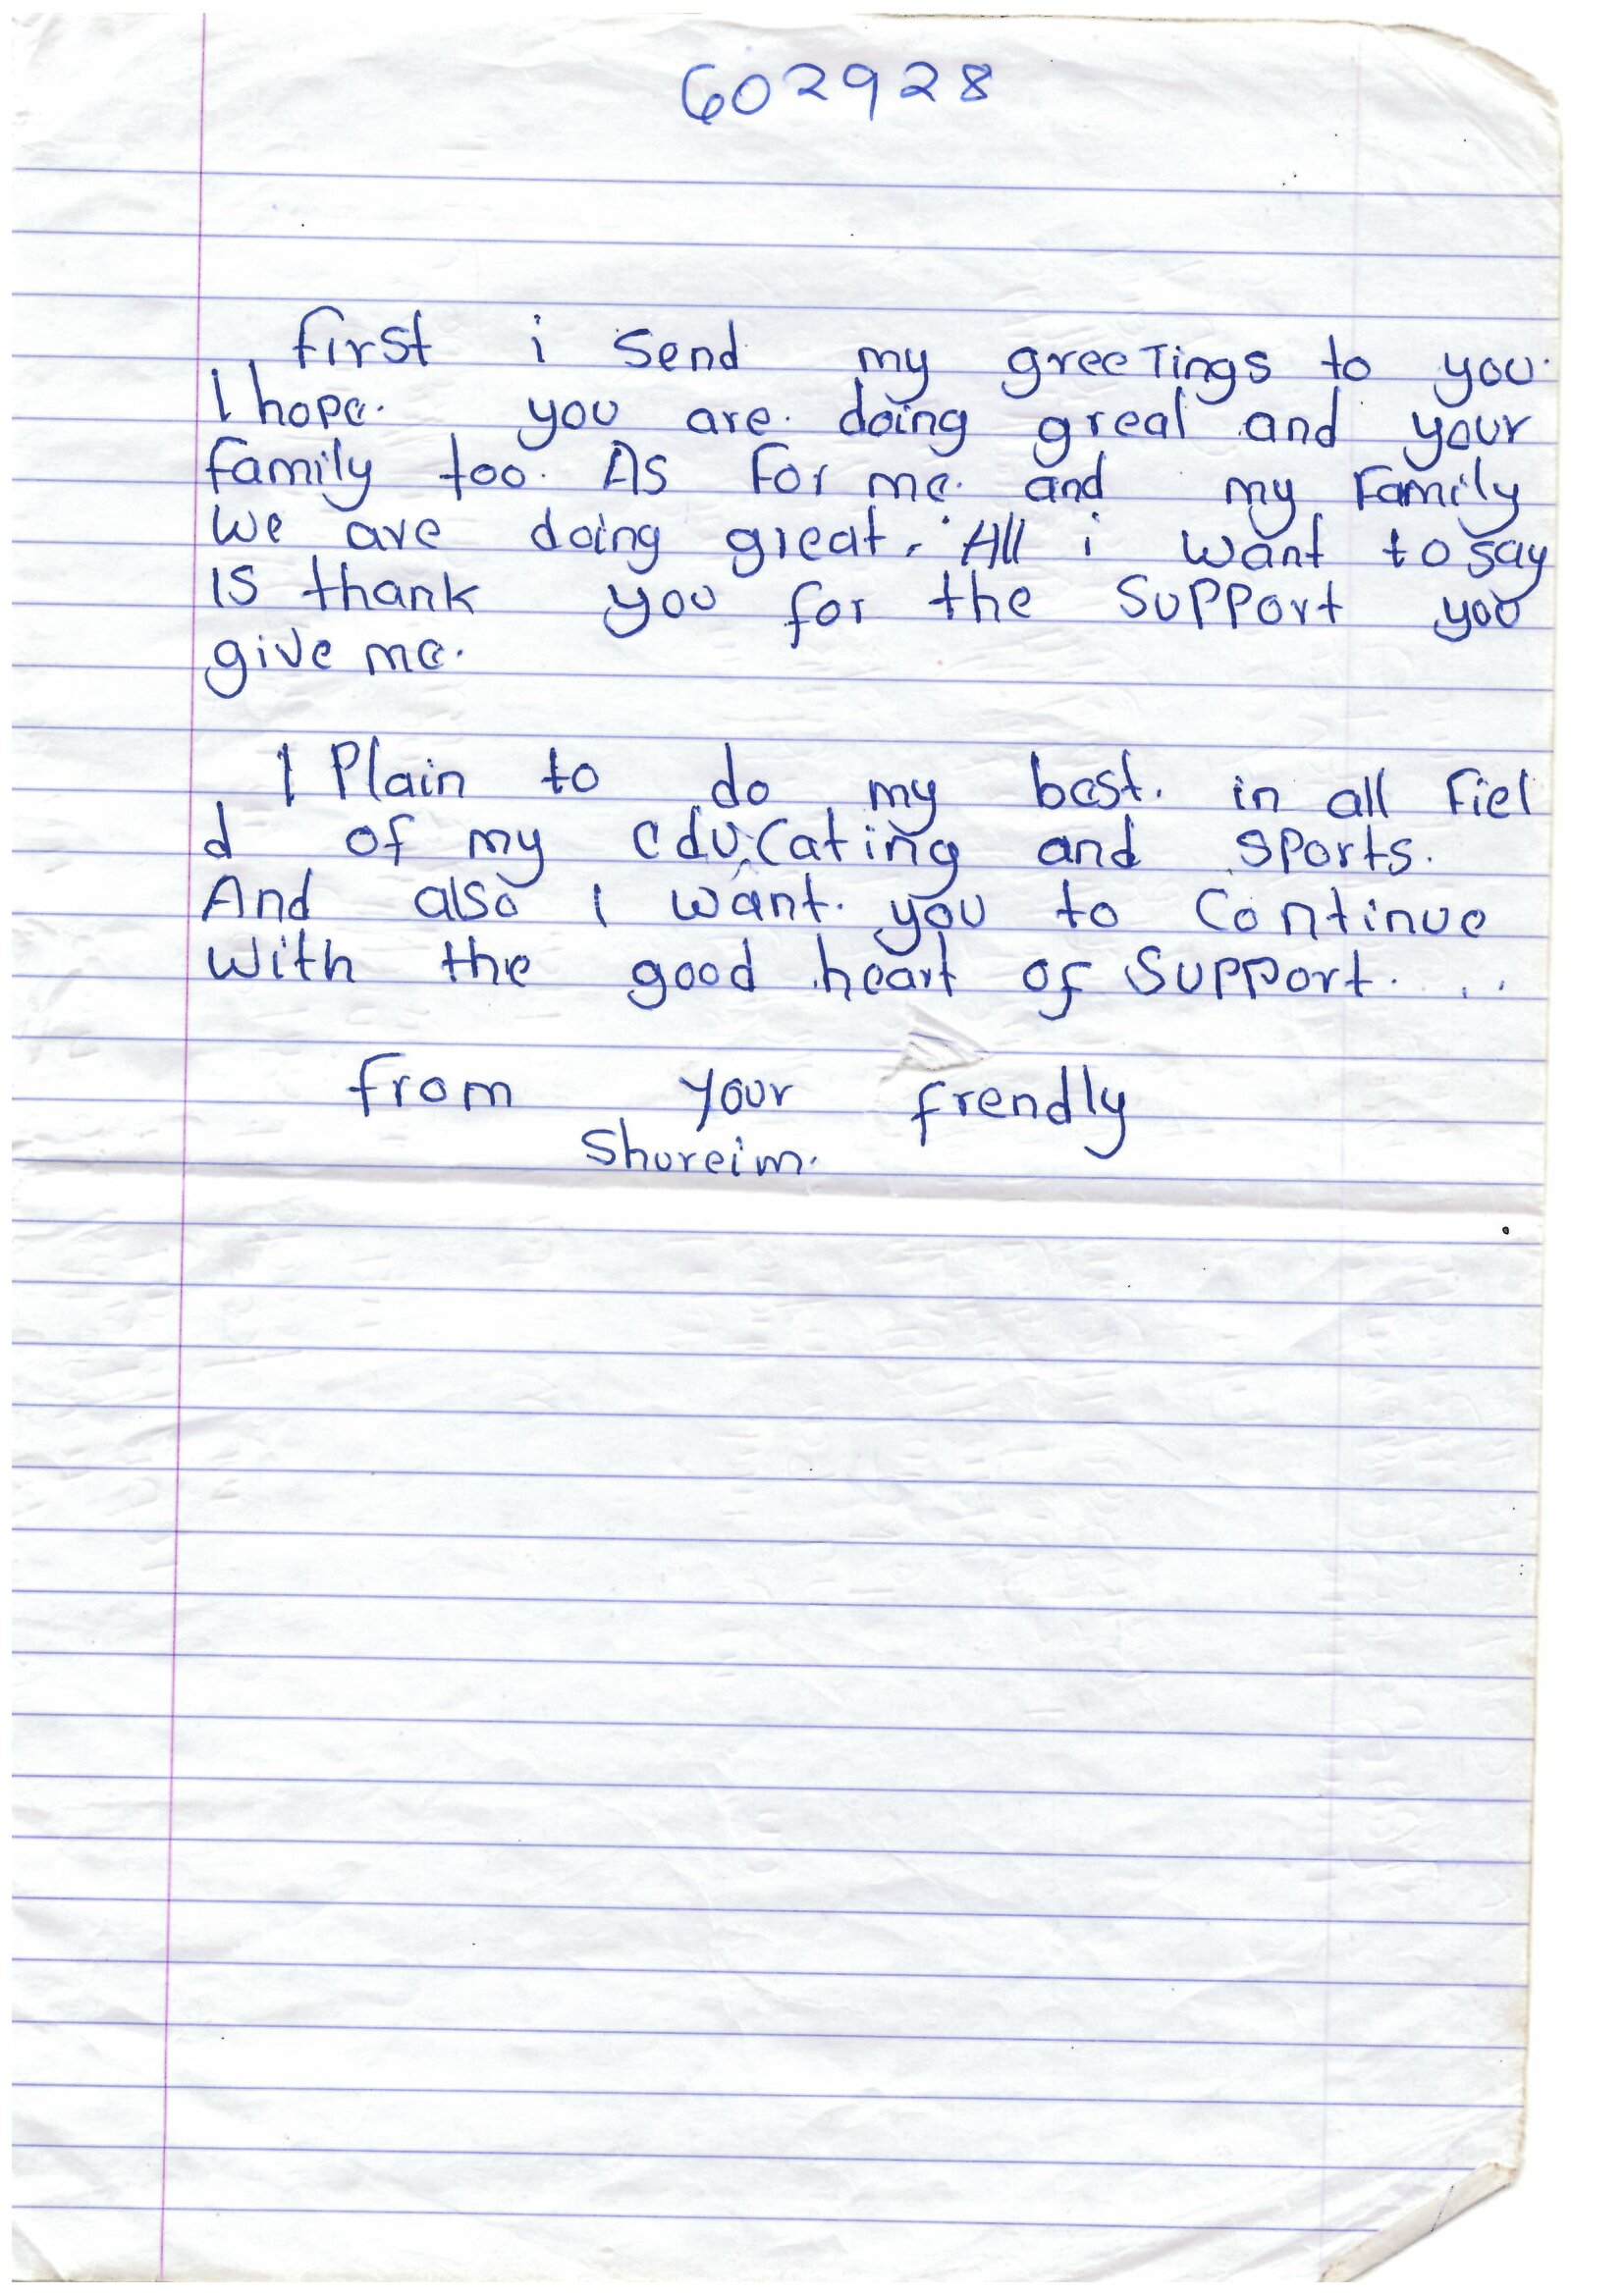 602928
First i send my greetings to you.
I hope. you are. doing great and your
family too. As for me. and my family
we are doing great. All i want to say
is thank you for the support you
give me.
I Plain to do my best. in all Fiel
d of my educating and sports.
And also I want. you to continue
with the good heart of support. . .
From your frendly
Shureim.